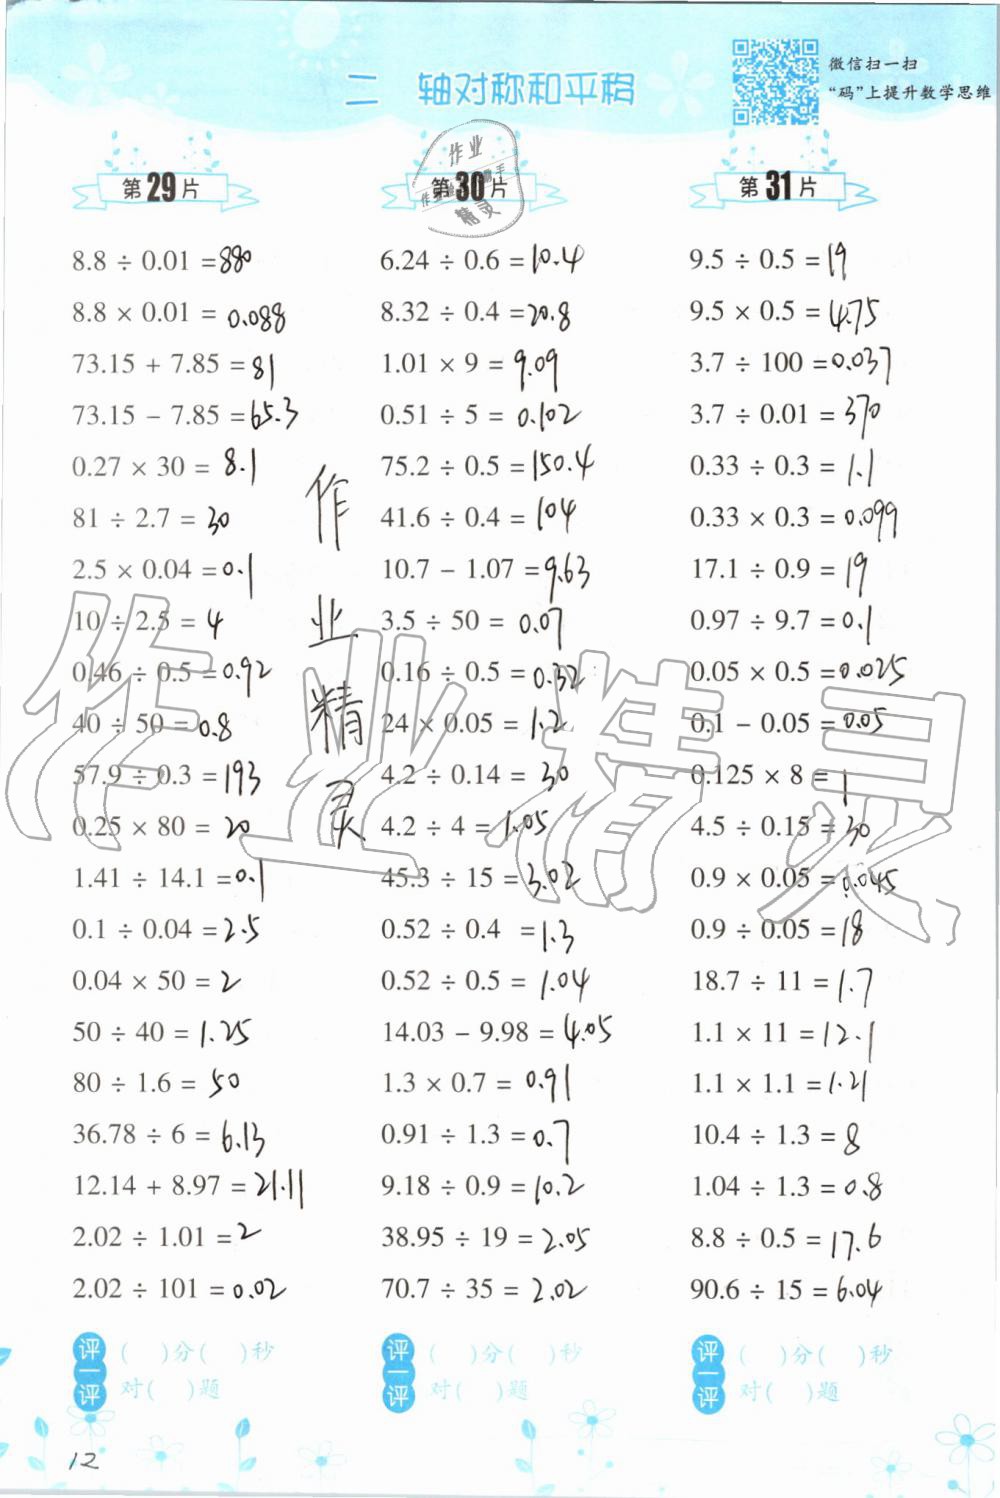 二 轴对称和平移
微信扫一扫
“码”上提升数学思维
作业
作业精灵助手
精灵
第29片
8.8 ÷ 0.01 = 880
8.8 × 0.01 = 0.088
73.15 + 7.85 = 81
73.15 − 7.85 = 65.3
0.27 × 30 = 8.1
81 ÷ 2.7 = 30
2.5 × 0.04 = 0.1
10 ÷ 2.5 = 4
0.46 ÷ 0.5 = 0.92
40 ÷ 50 = 0.8
57.9 ÷ 0.3 = 193
0.25 × 80 = 20
1.41 ÷ 14.1 = 0.1
0.1 ÷ 0.04 = 2.5
0.04 × 50 = 2
50 ÷ 40 = 1.25
80 ÷ 1.6 = 50
36.78 ÷ 6 = 6.13
12.14 + 8.97 = 21.11
2.02 ÷ 1.01 = 2
2.02 ÷ 101 = 0.02
评一评
( )分( )秒
对( )题
第30片
6.24 ÷ 0.6 = 10.4
8.32 ÷ 0.4 = 20.8
1.01 × 9 = 9.09
0.51 ÷ 5 = 0.102
75.2 ÷ 0.5 = 150.4
41.6 ÷ 0.4 = 104
10.7 − 1.07 = 9.63
3.5 ÷ 50 = 0.07
0.16 ÷ 0.5 = 0.32
24 × 0.05 = 1.2
4.2 ÷ 0.14 = 30
4.2 ÷ 4 = 1.05
45.3 ÷ 15 = 3.02
0.52 ÷ 0.4 = 1.3
0.52 ÷ 0.5 = 1.04
14.03 − 9.98 = 4.05
1.3 × 0.7 = 0.91
0.91 ÷ 1.3 = 0.7
9.18 ÷ 0.9 = 10.2
38.95 ÷ 19 = 2.05
70.7 ÷ 35 = 2.02
评一评
( )分( )秒
对( )题
第31片
9.5 ÷ 0.5 = 19
9.5 × 0.5 = 4.75
3.7 ÷ 100 = 0.037
3.7 ÷ 0.01 = 370
0.33 ÷ 0.3 = 1.1
0.33 × 0.3 = 0.099
17.1 ÷ 0.9 = 19
0.97 ÷ 9.7 = 0.1
0.05 × 0.5 = 0.025
0.1 − 0.05 = 0.05
0.125 × 8 = 1
4.5 ÷ 0.15 = 30
0.9 × 0.05 = 0.045
0.9 ÷ 0.05 = 18
18.7 ÷ 11 = 1.7
1.1 × 11 = 12.1
1.1 × 1.1 = 1.21
10.4 ÷ 1.3 = 8
1.04 ÷ 1.3 = 0.8
8.8 ÷ 0.5 = 17.6
90.6 ÷ 15 = 6.04
评一评
( )分( )秒
对( )题
作业精灵
作业精灵
12